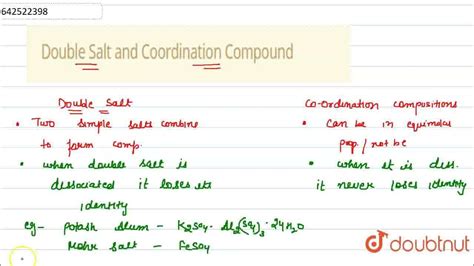 642522398
Double Salt and Coordination Compound
Double Salt
• Two simple salts combine
to form comp.
• when double salt is
dissociated it loses its
identity
eg- Potash alum - K2SO4. Al2(SO4)3. 24H2O
Mohr salt - FeSO4
Co-ordination compositions
• Can be in equimolar
prop. / not be
• when it is diss.
it never loses identity
doubtnut